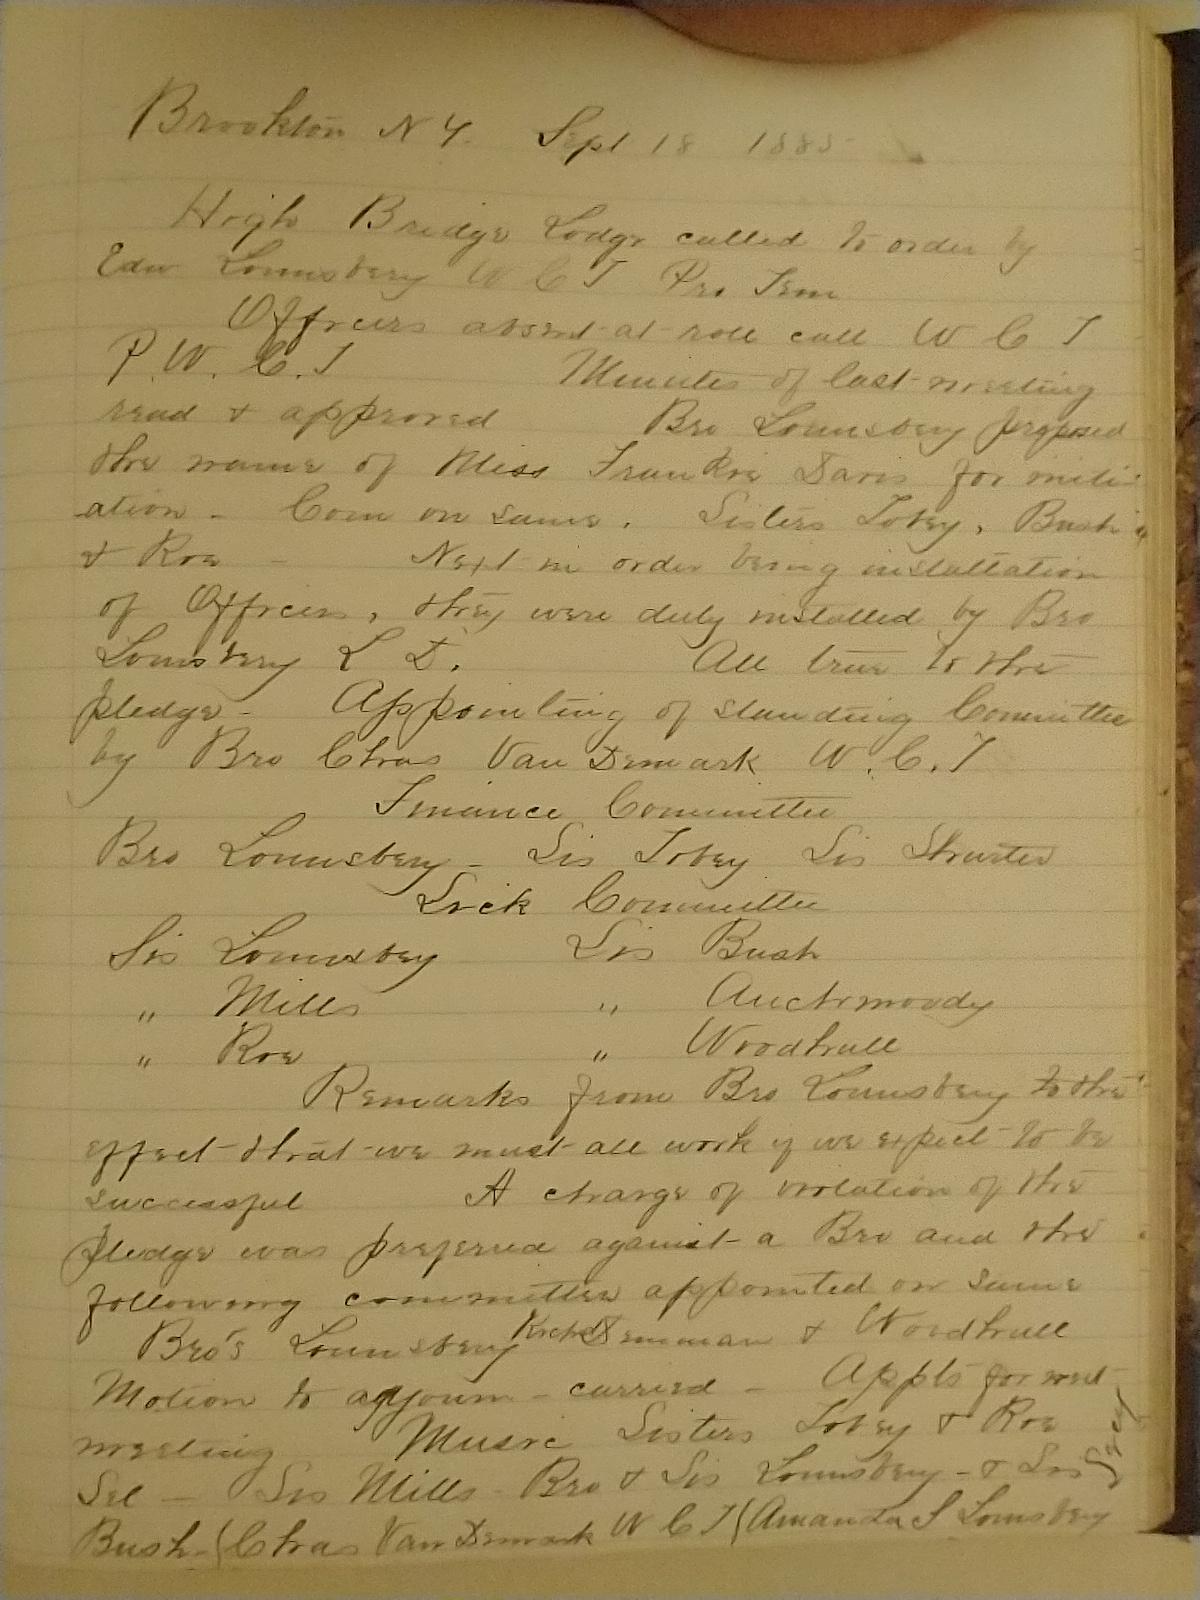 Brookton N Y. Sept 18 1885
High Bridge Lodge called to order by
Edw Lounsbery W C T Pro Tem
Officers absent at roll call W C T
P. W. C. T Minutes of last meeting
read & approved Bro Lounsbery proposed
the name of Miss Frankie Davis for initi-
ation - Com on same. Sisters Tobey, Bush
& Roe - Next in order being installation
of Officers, they were duly installed by Bro
Lounsbery L D. All true to the
pledge - Appointing of standing Committee
by Bro Chas Van Demark W. C. T
Finance Committee
Bro Lounsbery - Sis Tobey Sis Shurter
Sick Committee
Sis Lounsbery Sis Bush
" Mills " Auchmoody
" Roe " Woodhull
Remarks from Bro Lounsbery to the
effect that we must all work if we expect to be
successful A charge of violation of the
pledge was preferred against a Bro and the
following committee appointed on same
Bro's Lounsbery Denman & Woodhull
Motion to adjourn - carried - Appts for next
meeting Music Sisters Tobey & Roe
Sel - Sis Mills - Bro & Sis Lounsbery - & Sis
Bush - (Chas Van Demark W C T (Amanda S Lounsbery
Secy